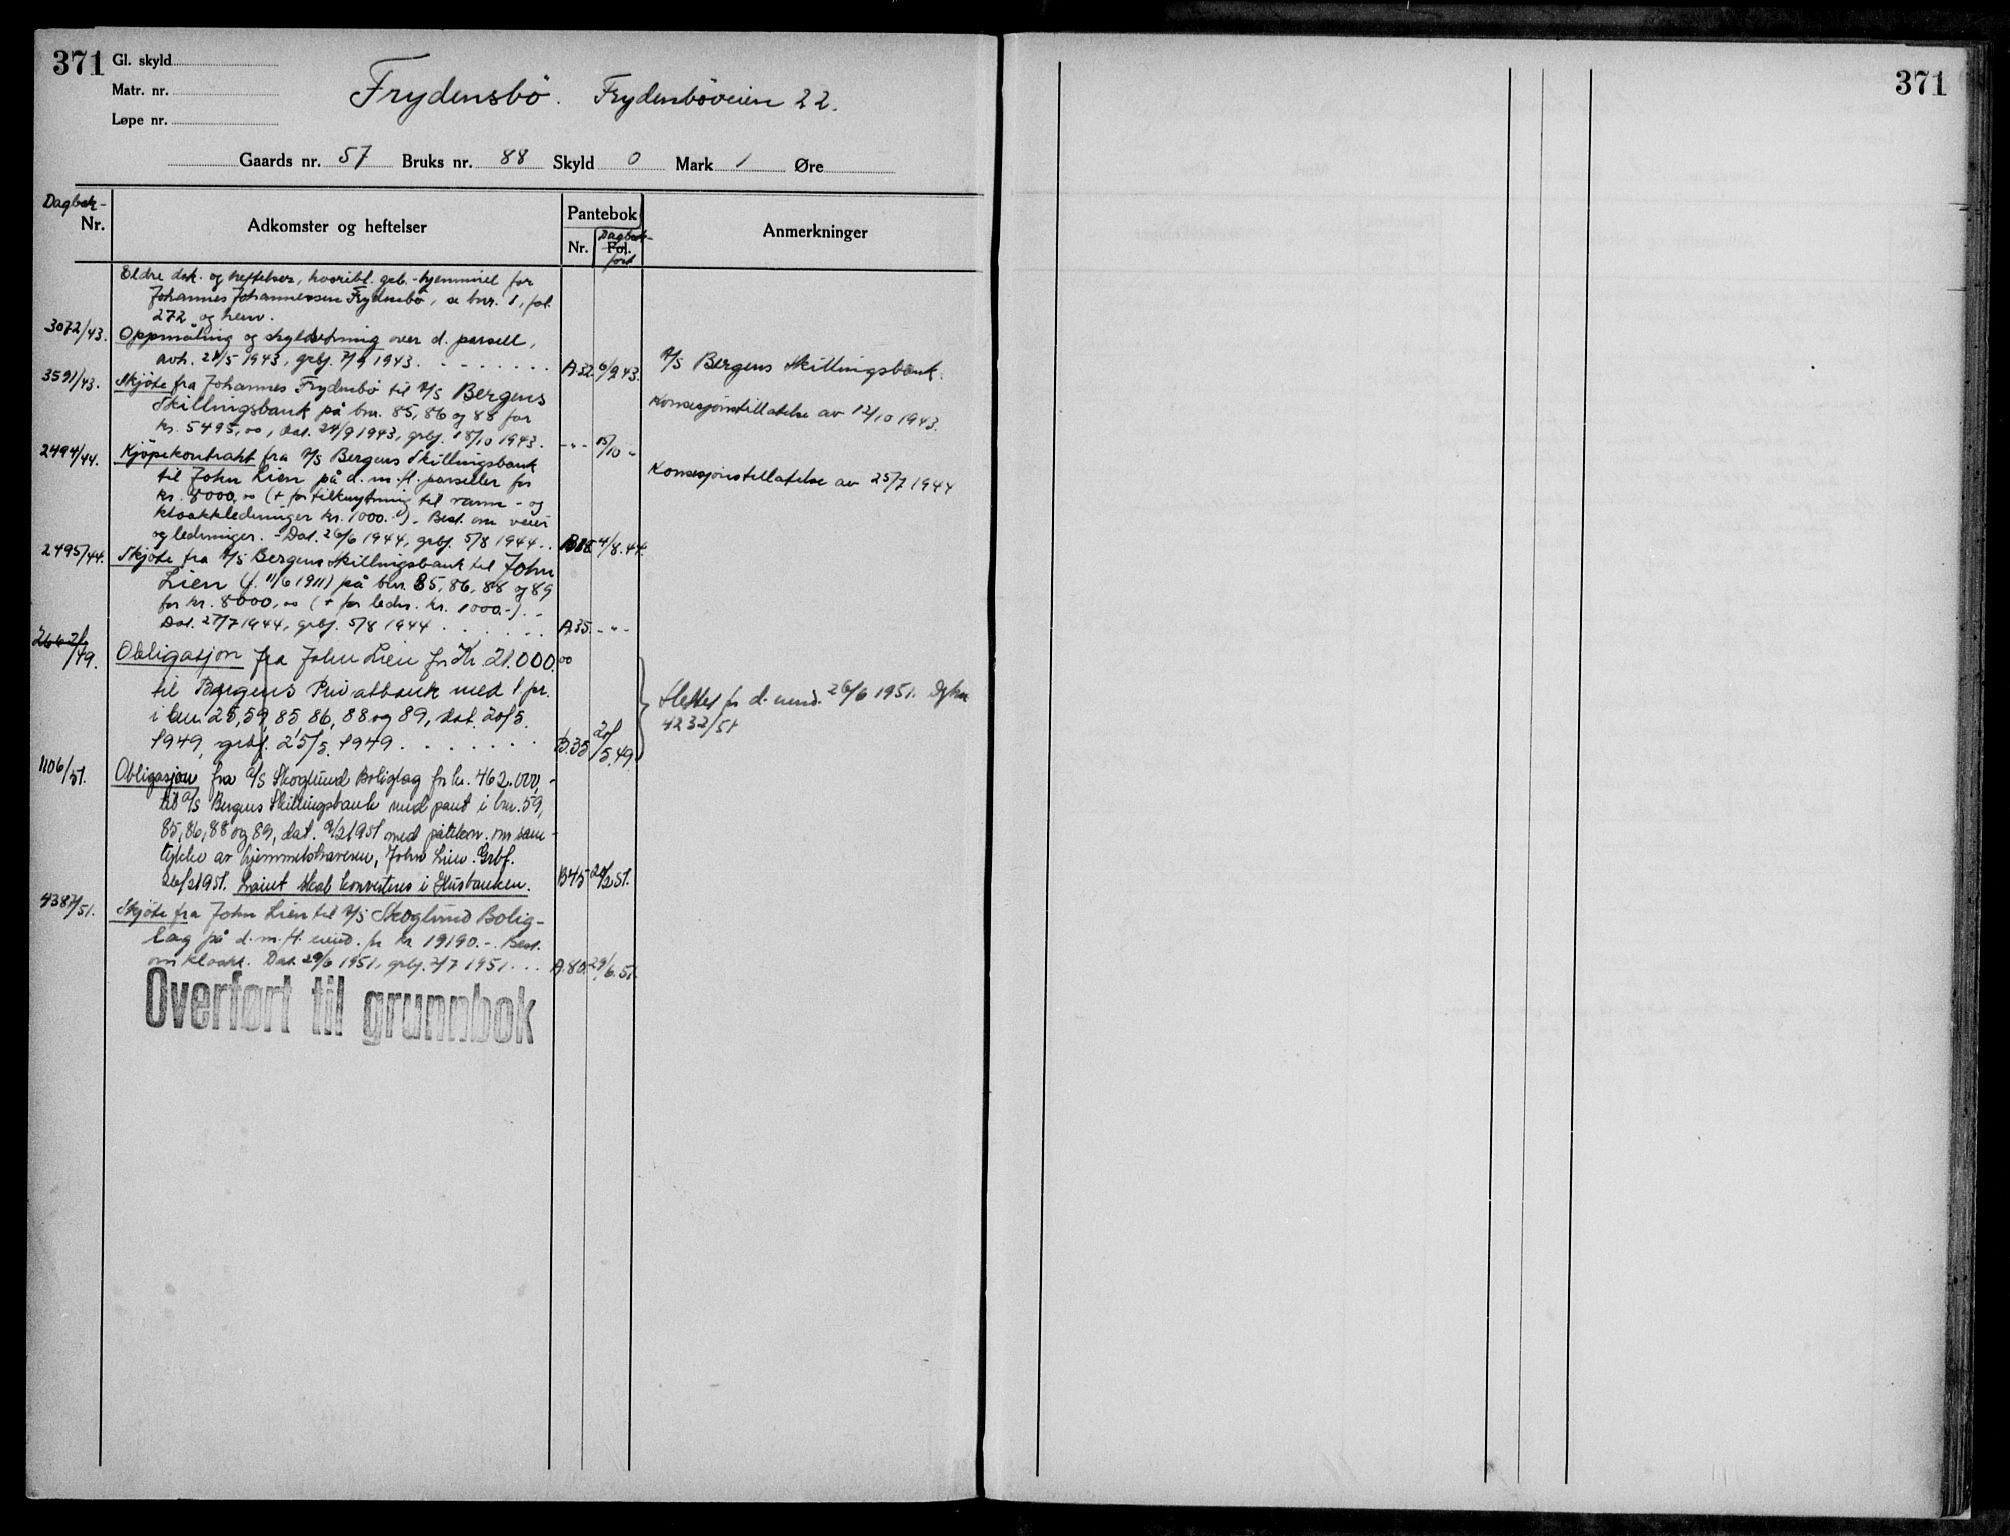 371
Gl. skyld
Matr. nr.
Løpe nr.
Frydensbö. Frydenböveien 22.
Gaards nr. 57 Bruks nr. 88 Skyld 0 Mark 1 Øre
Dagbok-
Nr.
Adkomster og heftelser
Pantebok
Nr. Fol.
Dagbok-
ført
Anmerkninger
Eldre dok. og heftelser, hvoribl. grb.-hjemmel for
Johannes Johannessen Frydenbö, se bnr. 1, fol.
272 og henv.
3072/43. Oppmåling og skyldsetning over d. parsell,
avh. 21/5 1943, grbf. 7/9 1943. A 32. 6/9 43.
A/S Bergens Skillingsbank.
3591/43. Skjöte fra Johannes Frydenbö til A/S Bergens
Skillingsbank på bnr. 85, 86 og 88 for
kr. 5495,00, Dat. 24/9 1943, grbf. 18/10 1943. -"- 15/10 -
Konsesjonstillatelse av 12/10 1943.
2494/44. Kjöpekontrakt fra A/S Bergens Skillingsbank
til John Lien på d. m. fl. parseller for
kr. 8000,00 (+ for tilknytning til vann- og
kloakkledninger kr. 1000.-). Best. om veier
og ledninger. - Dat. 26/6 1944, grbf. 5/8 1944.. B18. 4/8.44.
Konsesjonstillatelse av 25/7 1944
2495/44. Skjöte fra A/S Bergens Skillingsbank til John
Lien (f. 11/6 1911) på bnr. 85, 86, 88 og 89
for kr. 8000,00 (+ for ledn. kr. 1000.-). -
Dat. 27/7 1944, grbf. 5/8 1944 . . . . . A.35. -"-
/49. Obligasjon fra John Lien for Kr. 21.000.00
til Bergens Privatbank med 1 pr.
i bnr. 25, 59, 85 86, 88 og 89, dat. 20/5.
1949, grbf. 25/5. 1949. B.35 20/5.49.
Slettet for d. eiend. 26/6 1951. Dgbnr
4232/51
1106/51. Obligasjon fra A/S Skoglund Boliglag for kr. 462.000,-
til A/S Bergens Skillingsbank med pant i bnr. 59,
85, 86, 88 og 89, dat. 9/2 1951 med påtekn. om sam-
tykke av hjemmelshaveren, John Lien. Grbf.
26/2 1951. Lånet skal konverteres i Husbanken. B45 20/2 51.
4387/51. Skjöte fra John Lien til A/S Skoglund Bolig-
lag på d. m. fl. eiend. for kr 19190.-. Best.
om kloakk. Dat. 29/6 1951, grbf. 2/7 1951. . . A.80. 29/6.51.
Overført til grunnbok
371